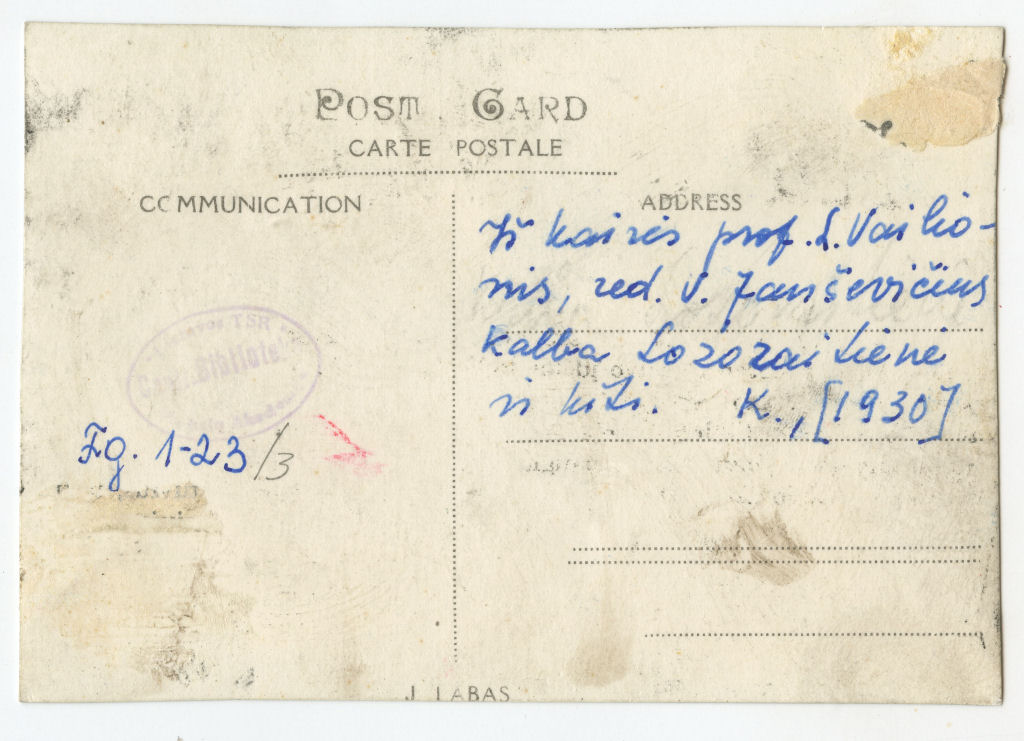 POST CARD
CARTE POSTALE
COMMUNICATION
ADDRESS
Iš kairės prof. L. Vailio-
nis, red. V. Janševičius
Kalba Lozoraitienė
ir kiti. K., [1930]
TSR
Bibliote
Fg. 1-23/3
J. LABAS